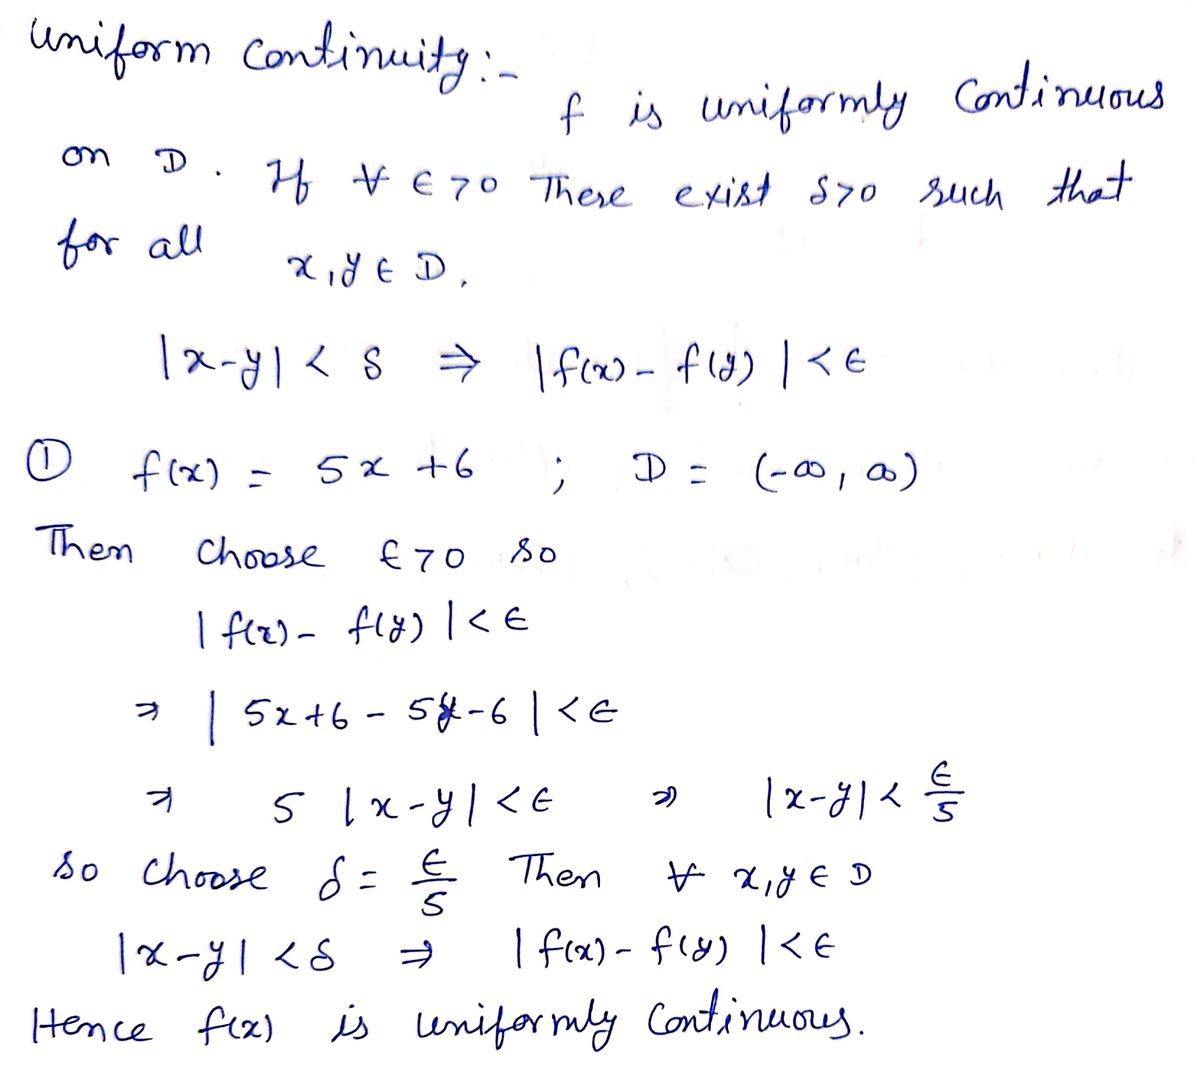 uniform continuity:-
f is uniformly continuous
on D. If ∀ ∈>0 There exist δ>0 such that
for all x,y ∈ D,
|x-y| < δ ⇒ |f(x) - f(y)| < ∈
① f(x) = 5x +6 ; D = (-∞, ∞)
Then choose ∈>0 so
|f(x) - f(y)| < ∈
⇒ |5x+6 - 5y-6| < ∈
⇒ 5 |x-y| < ∈ ⇒ |x-y| < ∈/5
so choose δ = ∈/5 Then ∀ x,y ∈ D
|x-y| < δ ⇒ |f(x) - f(y)| < ∈
Hence f(x) is uniformly continuous.